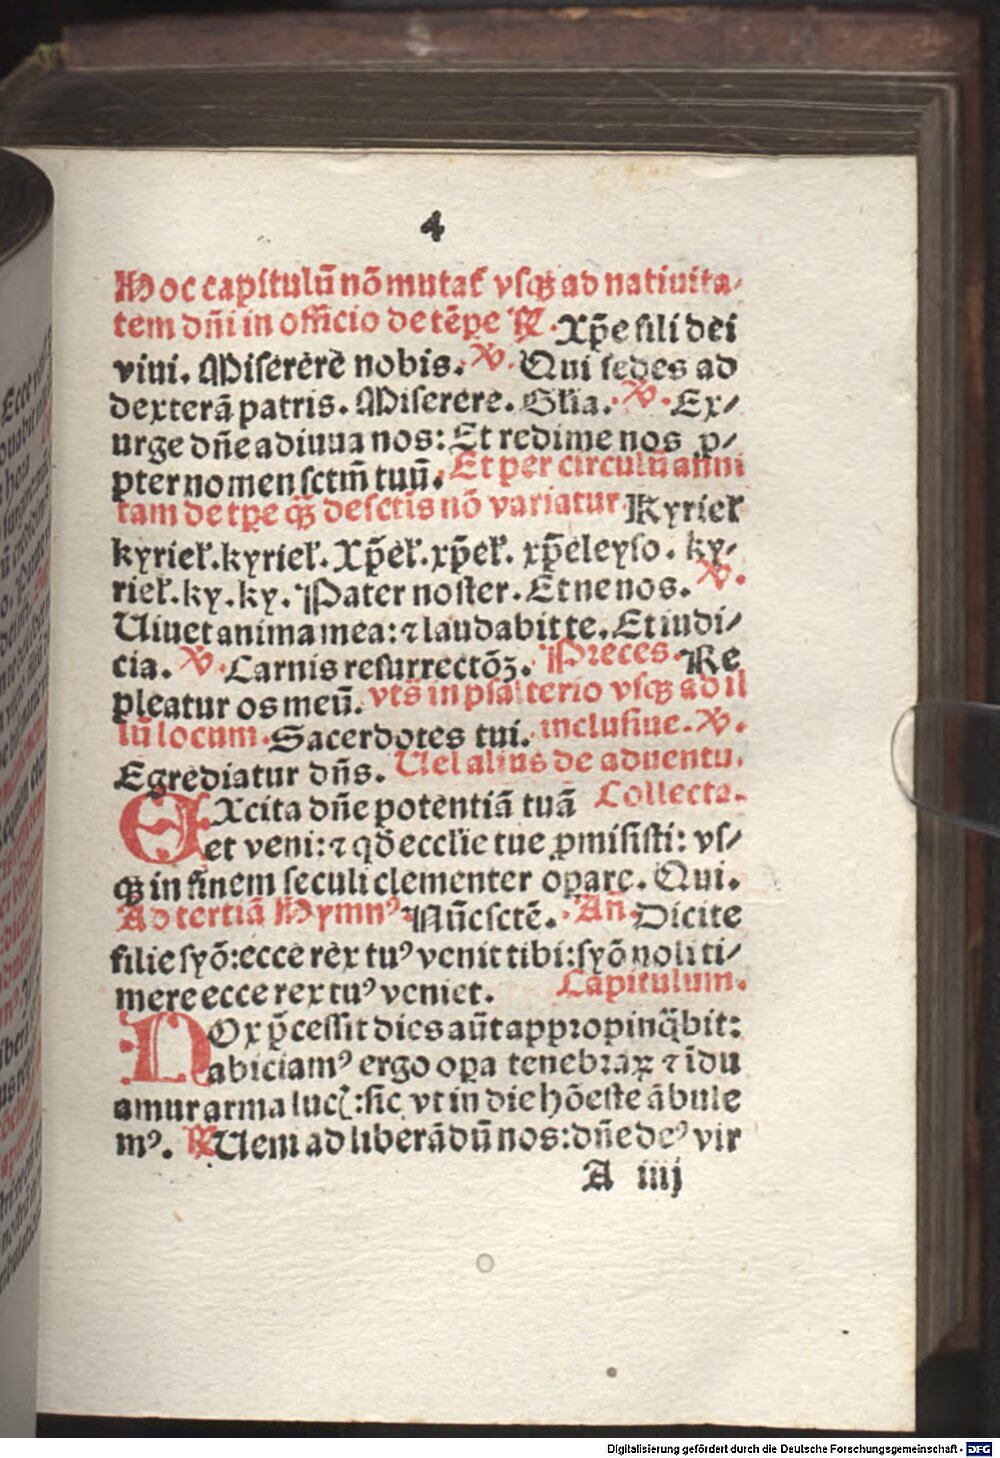 4
Hoc capitulū nō mutat̉ vsqꝫ ad natiuita⸗
tem dn̄i in officio de tēpe ℟. Xp̄e fili dei
viui. Miserere nobis. ℣. Qui sedes ad
dexterā patris. Miserere. Gl̄ia. ℣. Ex⸗
urge dn̄e adiuua nos: Et redime nos ꝓ⸗
pter nomen sctm̄ tuū. Et per circulū anni
tam de tp̄e qꝫ̄ de sctis nō variatur Kyriel̉
kyriel̉. kyriel̉. Xp̄el̉. xp̄el̉. xp̄eleyso. ky⸗
riel̉. ky. ky. Pater noster. Et ne nos. ℣.
Uiuet anima mea: ⁊ laudabit te. Et iudi⸗
cia. ℣. Carnis resurrectōꝫ. Preces. Re
pleatur os meū. vts̄ in psalterio vsqꝫ ad il
lū locum. Sacerdotes tui. inclusiue. ℣.
Egrediatur dn̄s. Uel alius de aduentu.
EXcita dn̄e potentiā tuā Collecta.
et veni: ⁊ qd̄ eccl̄ie tue ꝓmisisti: vs⸗
qꝫ in finem seculi clementer oꝑare. Qui.
Ad tertiā Hymnꝰ Nūc sctē. Añ. Dicite
filie syō: ecce rex tuꝰ venit tibi: syō noli ti⸗
mere ecce rex tuꝰ veniet. Capitulum.
NOx p̄cessit dies aūt appropinq̄bit:
abiciamꝰ ergo oꝑa tenebraꝝ ⁊ īdu
amur arma luc̉: sic vt in die hōeste ābule
mꝰ. ℟ Ueni ad liberādū nos: dn̄e deꝰ vir
A iiij
Digitalisierung gefördert durch die Deutsche Forschungsgemeinschaft - DFG